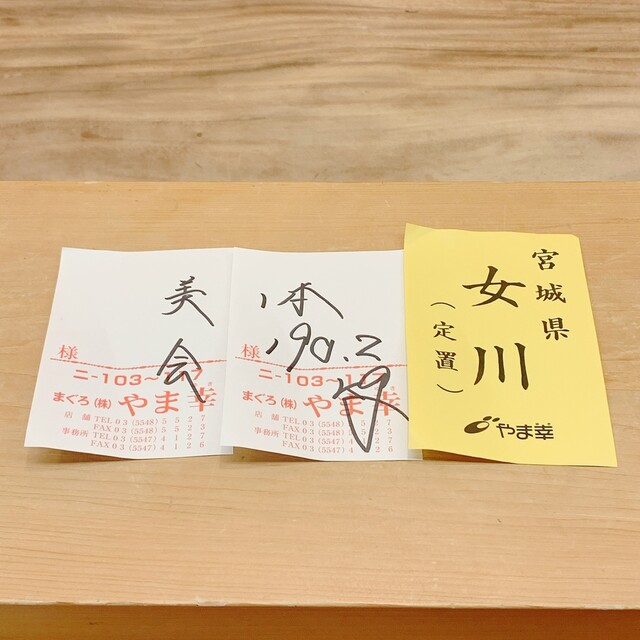 美会
様
ニ-103～
まぐろ(株)やま幸
店舗 TEL 03(5548)5327
FAX 03(5548)5523
事務所 TEL 03(5547)4137
FAX 03(5547)4126
1本
190.2
様
ニ-103～
まぐろ(株)やま幸
店舗 TEL 03(5548)5
FAX 03(5548)5
事務所 TEL 03(5547)4
FAX 03(5547)4
宮城県
女川
(定置)
やま幸